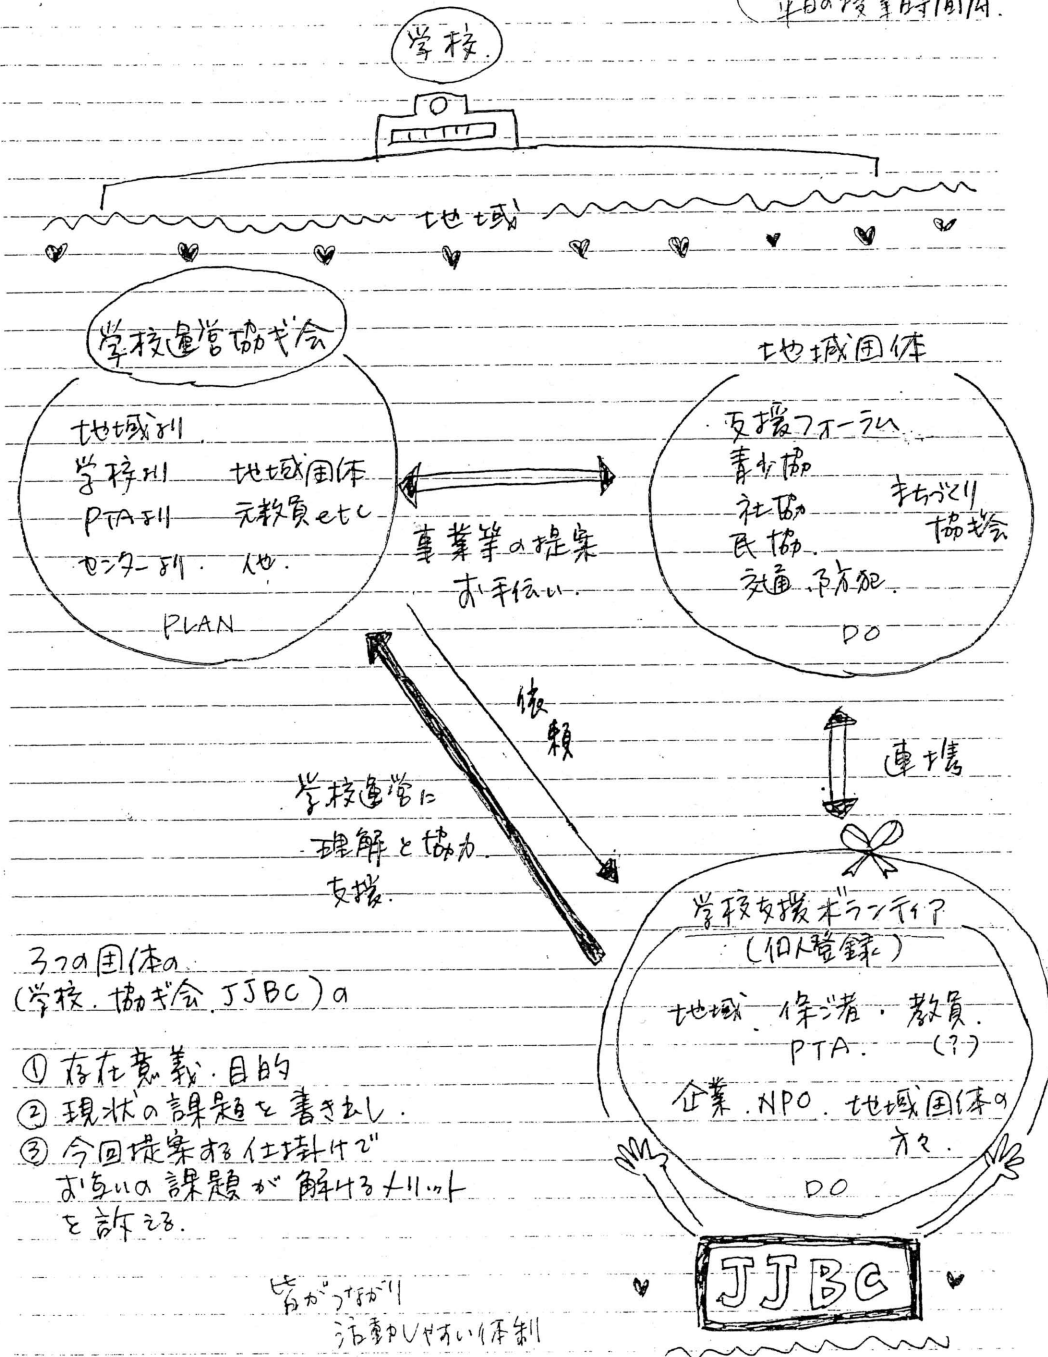 平日の授業時間内.
学校.
地域
学校運営協ギ会
地域より
学校より 地域団体
PTAより 元教員etc
センターより. 他.
PLAN
事業等の提案
お手伝い.
地域団体
支援フォーラム
青少協
社協
民協.
交通.防犯.
まちづくり
協ギ会
DO
依
頼
連携
学校運営に
理解と協力.
支援.
学校支援ボランティア
(個人登録)
地域. 保ゴ者. 教員.
PTA. (?)
企業.NPO. 地域団体の
方々.
DO
JJBC
3つの団体の
(学校.協ギ会.JJBC)の
① 存在意義.目的
② 現状の課題を書き出し.
③ 今回提案する仕掛けで
お互いの課題が解けるメリット
を訴える.
皆がつながり
活動しやすい体制